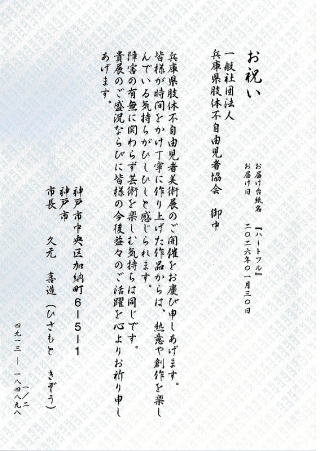 お祝い
お届け台紙名　【ハートフル】
お届け日　二〇二六年〇一月三〇日
一般社団法人
兵庫県肢体不自由児者協会　御中
兵庫県肢体不自由児者美術展のご開催をお慶び申しあげます。
皆様が時間をかけ丁寧に作り上げた作品からは、熱意や創作を楽し
んでいる気持ちがひしひしと感じられます。
障害の有無に関わらず芸術を楽しむ気持ちは同じです。
貴展のご盛況ならびに皆様の今後益々のご活躍を心よりお祈り申し
あげます。
神戸市中央区加納町６－５－１
神戸市
市長　久元　喜造（ひさもと　きぞう）
一／二
四九一三―一八四八九八